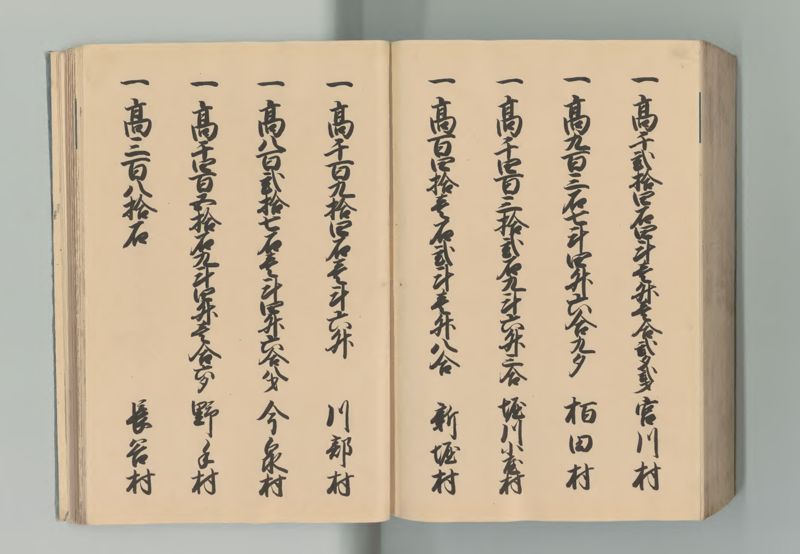 一 高千弐拾四石四斗壱升壱合弐夕弐才 宮川村
一 高九百三石七斗四升六合九夕 栢田村
一 高千四百三拾弐石九斗六升三合 堀川小屋村
一 高百四拾壱石弐斗壱升八合 新堀村
一 高千百九拾四石壱斗六升 川部村
一 高八百弐拾七石壱斗四升六合八夕 今泉村
一 高千四百五拾石九斗四升壱合六夕 野手村
一 高三百八拾石 長谷村